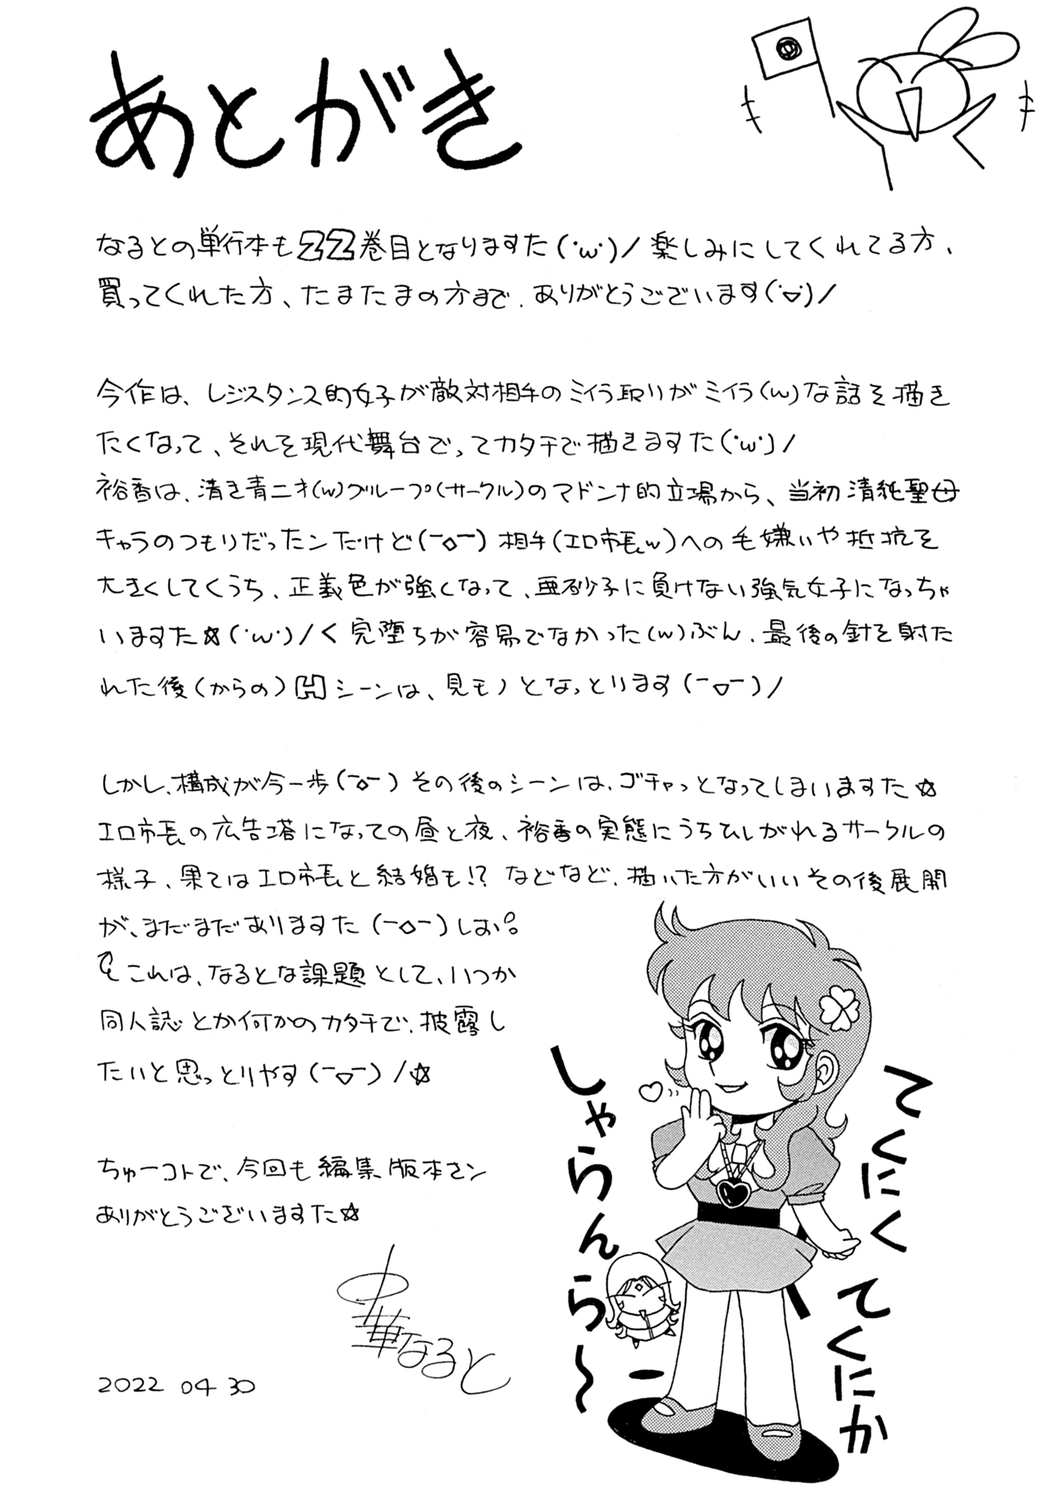 あとがき
なるとの単行本も22巻目となりますた(･ω･)ノ楽しみにしてくれてる方、
買ってくれた方、たまたまの方まで、ありがとうございます(･▽･)ノ
今作は、レジスタンス的女子が敵対相手のミイラ取りがミイラ(w)な話を描き
たくなって、それを現代舞台でってカタチで描きますた(･ω･)ノ
裕香は、清き青二才(w)グループ(サークル)のマドンナ的立場から、当初清純聖母
キャラのつもりだったンだけど(￣◇￣)相手(エロ市長w)への毛嫌いや抵抗を
大きくしてくうち、正義色が強くなって、亜砂子に負けない強気女子になっちゃ
いますた☆(･ω･)ノく完堕ちが容易でなかった(w)ぶん、最後の針を射た
れた後(からの)Hシーンは、見モノとなっとります(￣▽￣)ノ
しかし、構成が今一歩(￣◇￣)その後のシーンは、ゴチャっとなってしまいますた☆
エロ市長の広告塔になっての昼と夜、裕香の実態にうちひしがれるサークルの
様子、果てはエロ市長と結婚も!?などなど、描いた方がいいその後展開
が、まだまだありますた(￣◇￣)しお。
これは、なるとな課題として、いつか
同人誌とか何かのカタチで、披露し
たいと思っとりやす(￣▽￣)ノ☆
ちゅーコトで、今回も編集版本サン
ありがとうございますた☆
中華なると
2022 04 30
てくにく てくにか
しゃらんら〜